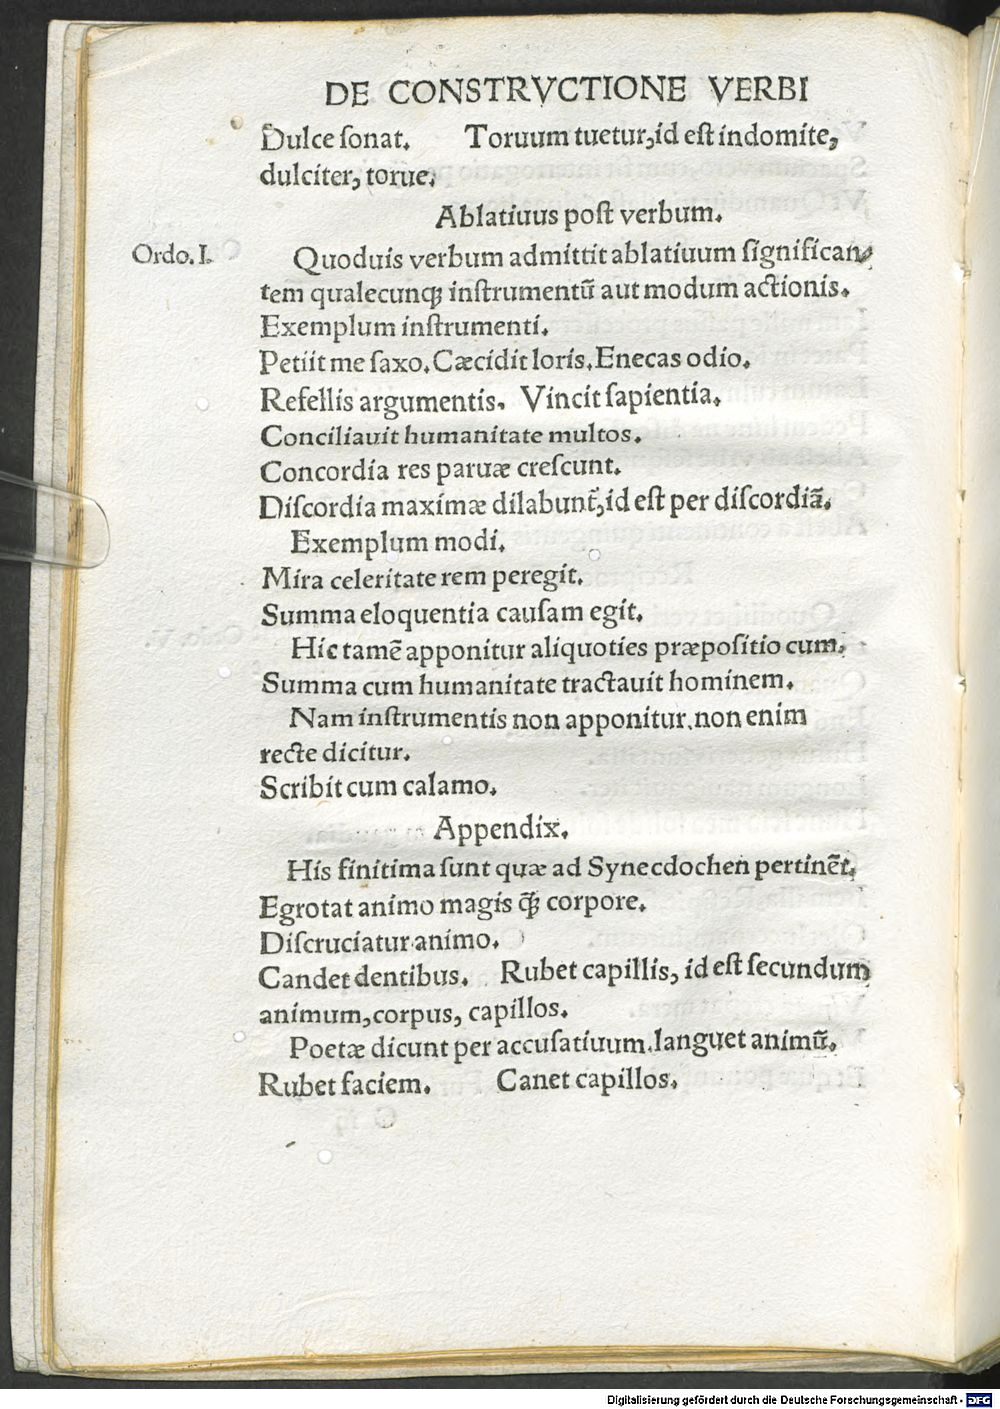 DE CONSTRVCTIONE VERBI
Dulce ſonat. Toruum tuetur, id eſt indomite,
dulciter, torue.
Ablatiuus poſt verbum.
Ordo. I.
Quoduis verbum admittit ablatiuum ſignifican-
tem qualecunqꝫ inſtrumentū aut modum actionis.
Exemplum inſtrumenti.
Petiit me ſaxo. Cæcidit loris. Enecas odio.
Refellis argumentis. Vincit ſapientia.
Conciliauit humanitate multos.
Concordia res paruæ creſcunt.
Diſcordia maximæ dilabunt᷑, id eſt per diſcordiā.
Exemplum modi.
Mira celeritate rem peregit.
Summa eloquentia cauſam egit.
Hic tamē apponitur aliquoties præpoſitio cum.
Summa cum humanitate tractauit hominem.
Nam inſtrumentis non apponitur. non enim
recte dicitur.
Scribit cum calamo.
Appendix.
His finitima ſunt quæ ad Synecdochen pertinēt.
Egrotat animo magis q̄ꝫ corpore.
Diſcruciatur animo.
Candet dentibus. Rubet capillis, id eſt ſecundum
animum, corpus, capillos.
Poetæ dicunt per accuſatiuum. languet animū.
Rubet faciem. Canet capillos.
Digitalisierung gefördert durch die Deutsche Forschungsgemeinschaft - DFG